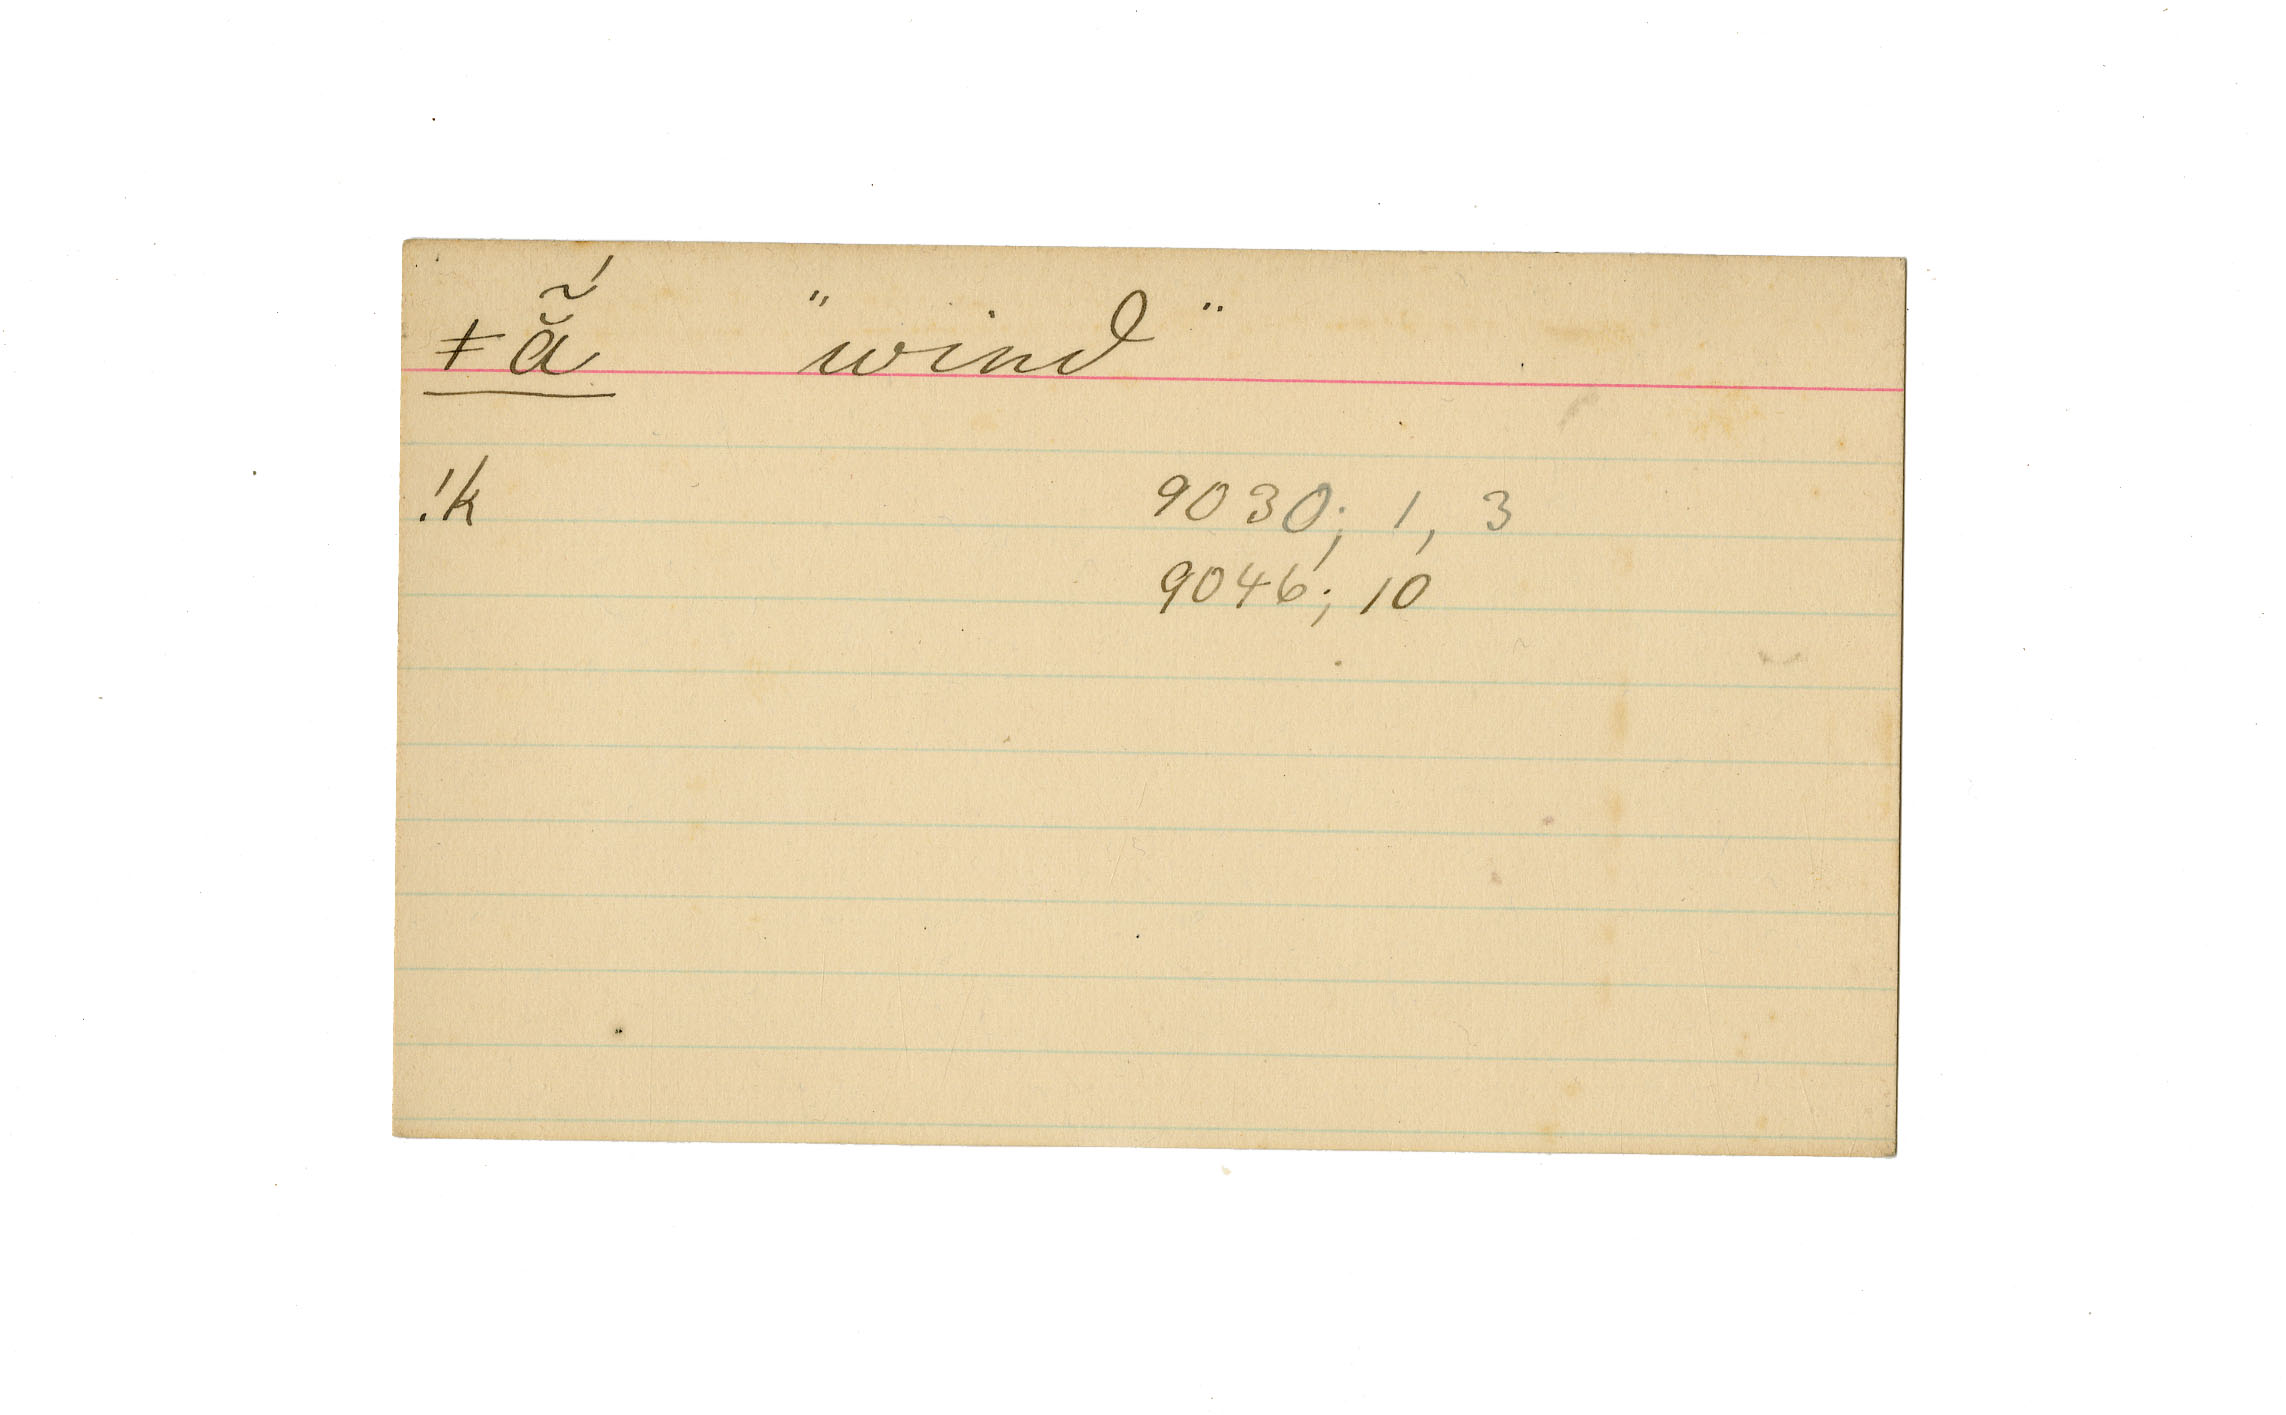 ǂẵ́ "wind"
!k 9030; 1, 3
9046; 10